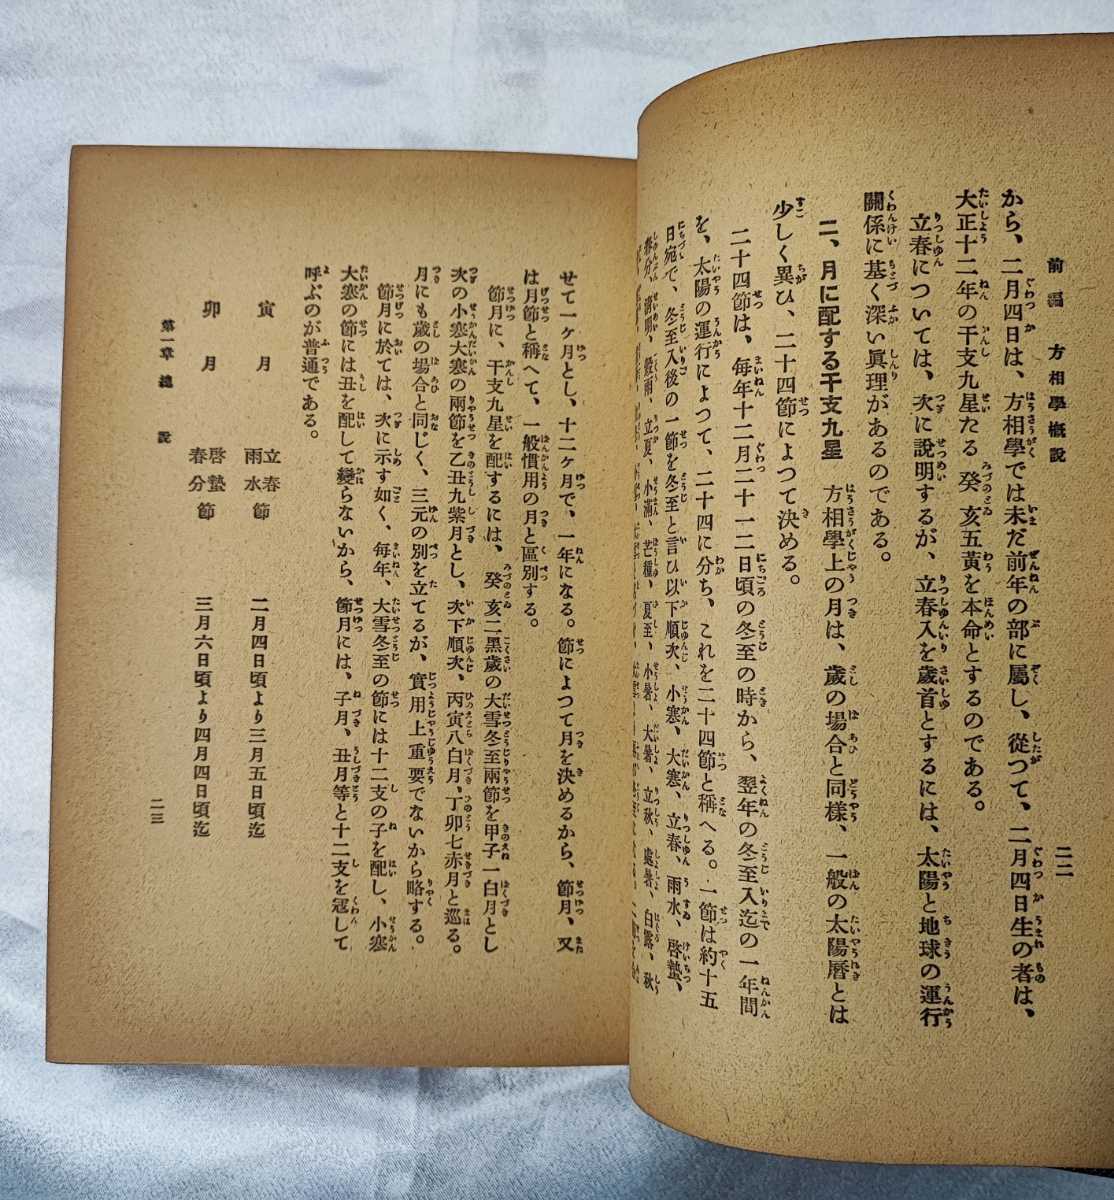 前編 方相學概説
二二
から、二月四日は、方相學では未だ前年の部に屬し、從つて、二月四日生の者は、
大正十二年の干支九星たる癸亥五黃を本命とするのである。
立春については、次に說明するが、立春入を歲首とするには、太陽と地球の運行
關係に基く深い眞理があるのである。
二、月に配する干支九星 方相學上の月は、歲の場合と同樣、一般の太陽曆とは
少しく異ひ、二十四節によつて決める。
二十四節は、每年十二月二十一二日頃の冬至の時から、翌年の冬至入迄の一年間
を、太陽の運行によつて、二十四に分ち、これを二十四節と稱へる。一節は約十五
日宛で、冬至入後の一節を冬至と言ひ以下順次、小寒、大寒、立春、雨水、啓蟄、
春分、淸明、穀雨、立夏、小滿、芒種、夏至、小暑、大暑、立秋、處暑、白露、秋
せて一ヶ月とし、十二ヶ月で、一年になる。節によつて月を決めるから、節月、又
は月節と稱へて、一般慣用の月と區別する。
節月に、干支九星を配するには、癸亥二黑歲の大雪冬至兩節を甲子一白月とし
次の小寒大寒の兩節を乙丑九紫月とし、次下順次、丙寅八白月、丁卯七赤月と巡る。
月にも歲の場合と同じく、三元の別を立てるが、實用上重要でないから略する。
節月に於ては、次に示す如く、每年、大雪冬至の節には十二支の子を配し、小寒
大寒の節には丑を配して變らないから、節月には、子月、丑月等と十二支を冠して
呼ぶのが普通である。
寅月 立春 雨水節 二月四日頃より三月五日頃迄
卯月 啓蟄 春分節 三月六日頃より四月四日頃迄
第一章 總說
二三